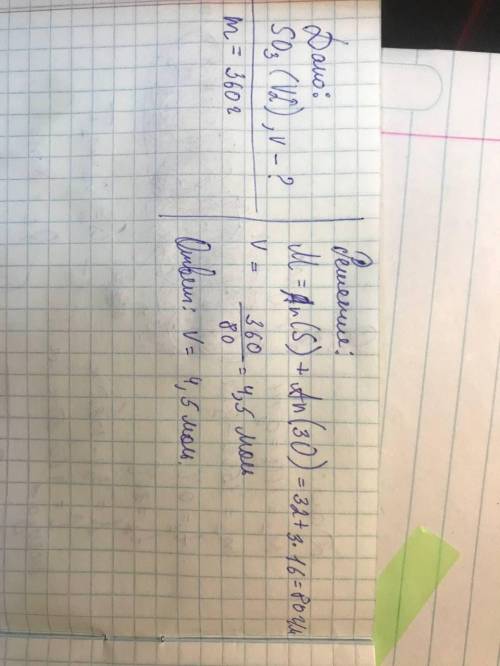 Дано:
SO3 (VI), V - ?
m = 360 г
Решение:
M = Ar(S) + Ar(3O) = 32 + 3 · 16 = 80 г/м
V = 360/80 = 4,5 моль
Ответ: V = 4,5 моль.